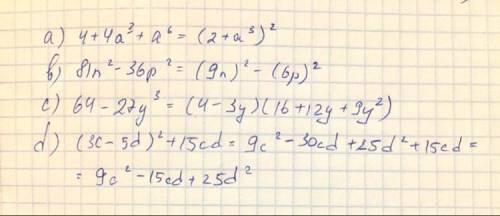 a) 4+4a³+a⁶=(2+a³)²
b) 81n²-36p²=(9n)²-(6p)²
c) 64-27y³=(4-3y)(16+12y+9y²)
d) (3c-5d)²+15cd=9c²-30cd+25d²+15cd=
=9c²-15cd+25d²